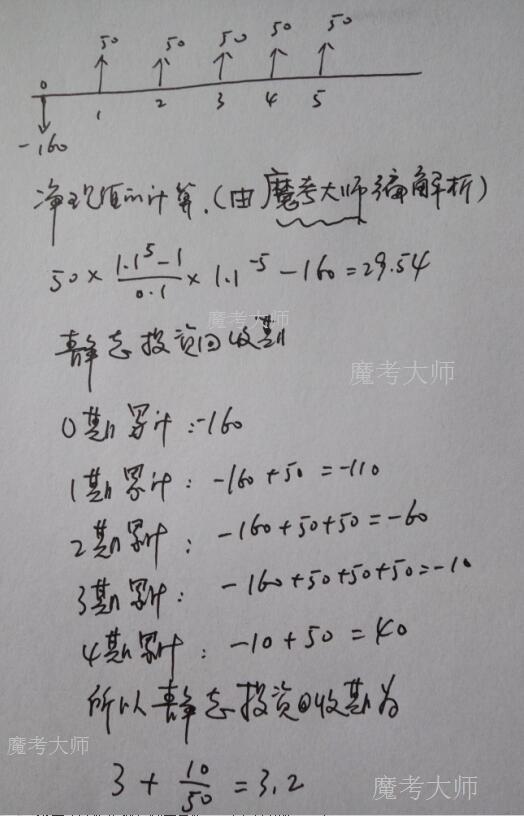 50 50 50 50 50
0 1 2 3 4 5
-160
净现值的计算.(由魔考大师编解析)
50 × (1.1^5 - 1)/0.1 × 1.1^-5 - 160 = 29.54
魔考大师
静态投资回收期
魔考大师
0期累计:-160
1期累计: -160+50=-110
2期累计: -160+50+50=-60
3期累计: -160+50+50+50=-10
4期累计: -10+50=40
所以静态投资回收期为
魔考大师
3 + 10/50 = 3.2
魔考大师